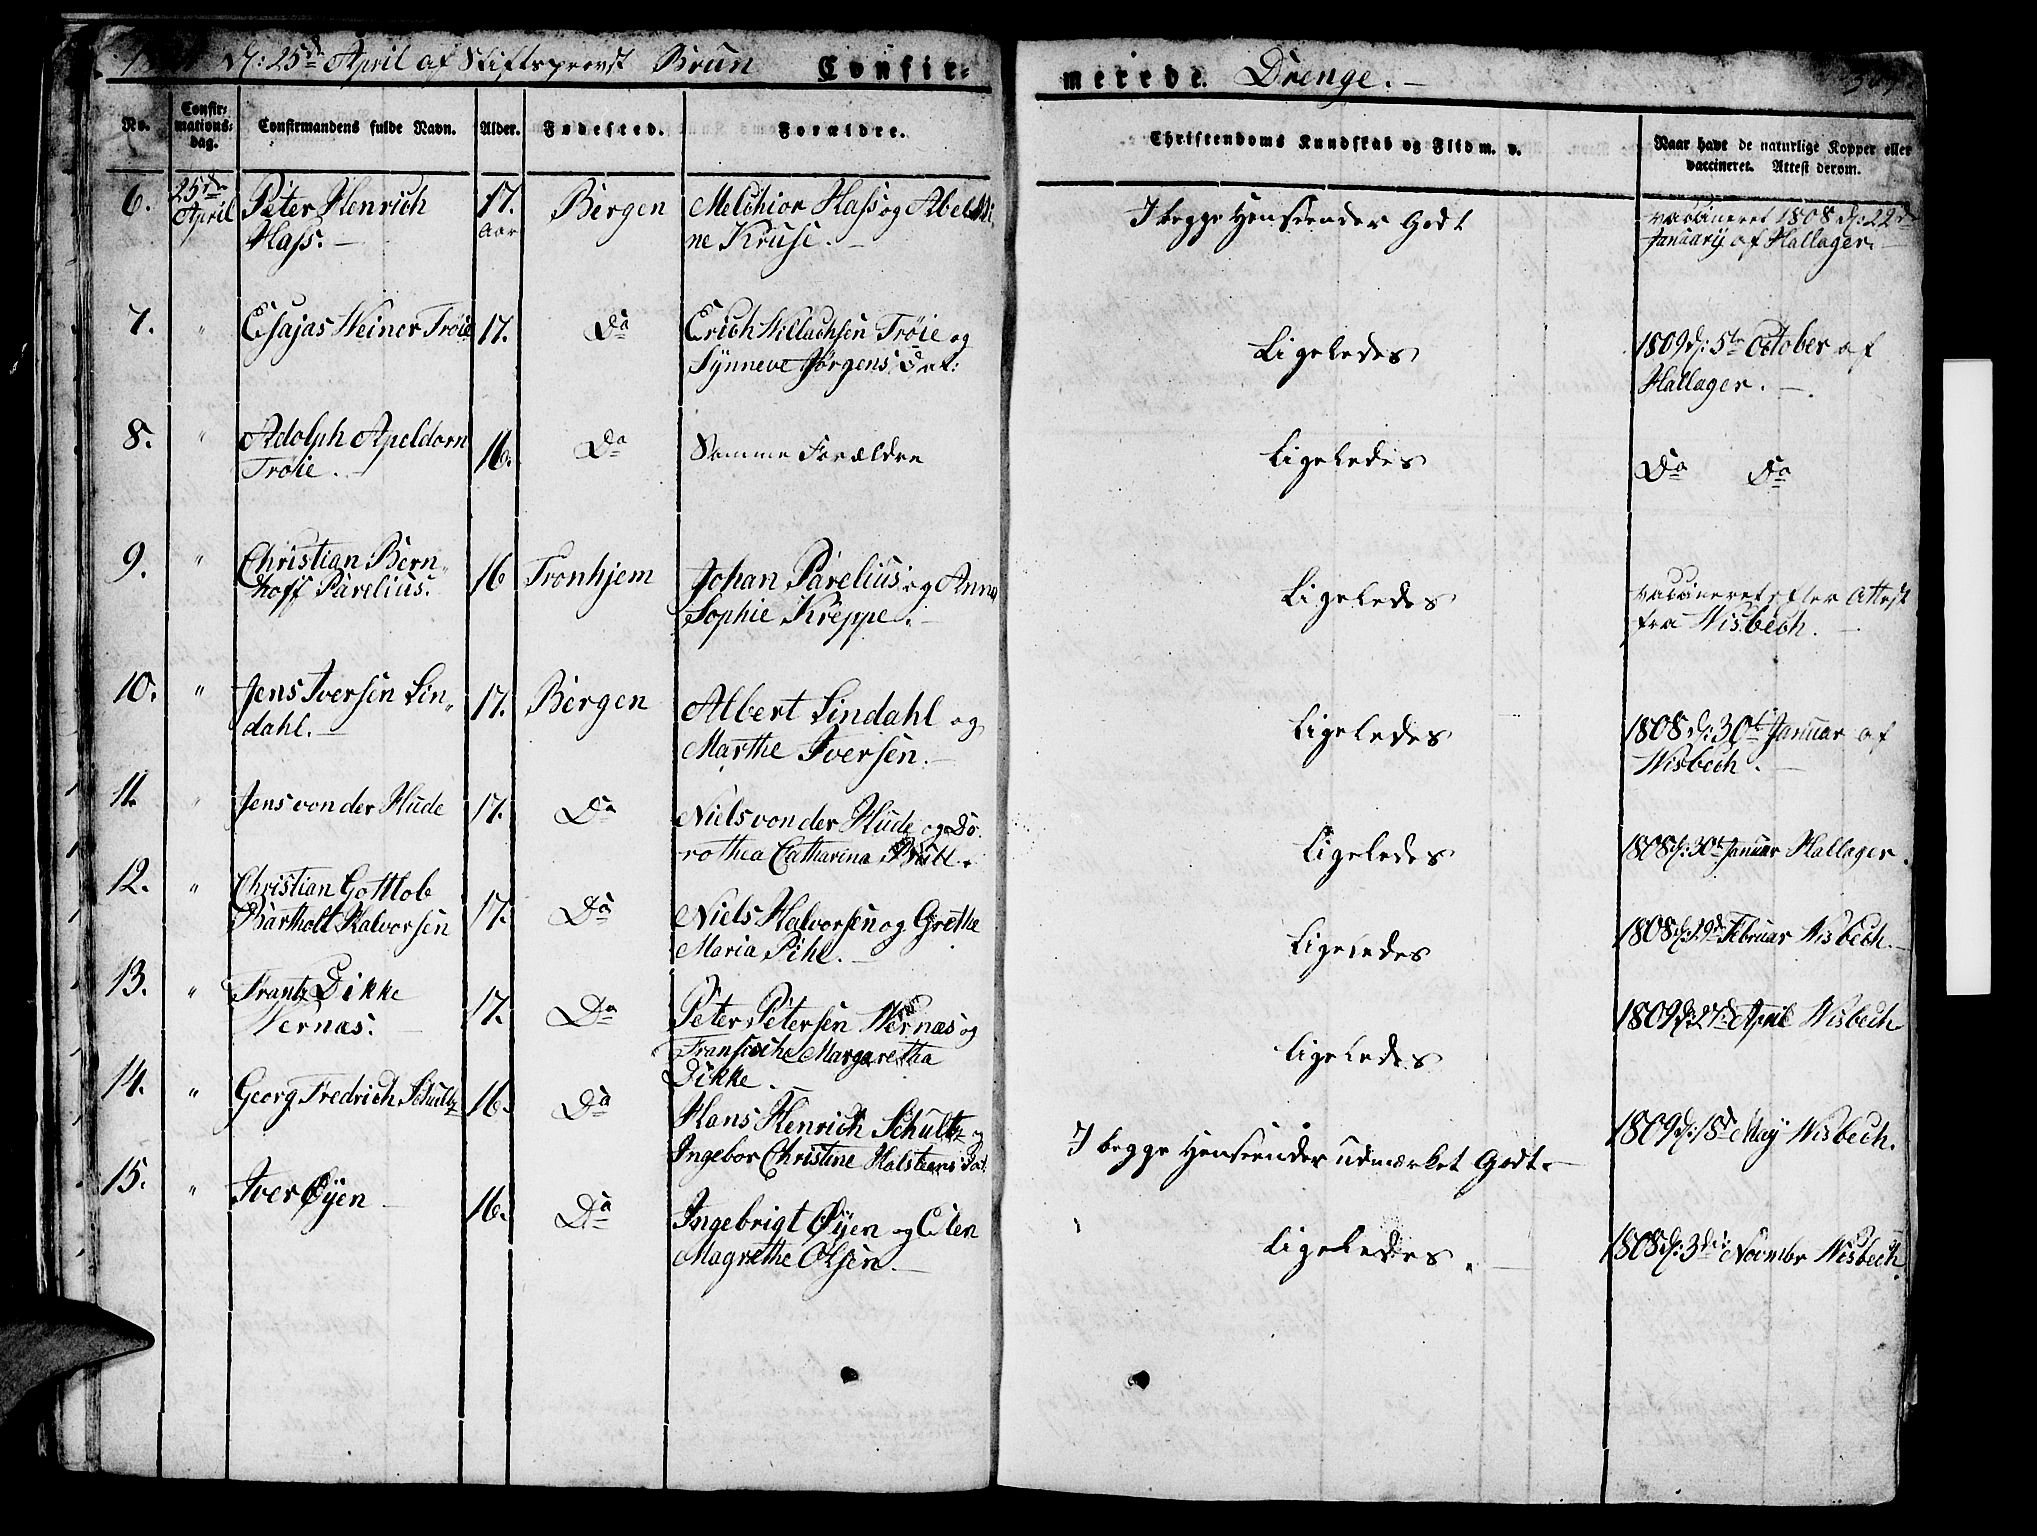 d: 25de April af Stiftsprovst Brun Confir-
merede Drenge. –
No.
Confir-
mations-
dag.
Confirmandens fulde Navn.
Alder.
Fødested.
Forældre.
Christendoms Kundskab og Flid m. v.
Naar havt de naturlige Kopper eller
vaccineret. Attest derom.
6. 25de April Peter Henrich 17. Aar Bergen Melchior Hass og Abel
Hass. – ne Kruse. –
I begge Henseender Godt
vaccineret 1808 d: 22d
January af Hallager. –
7. " Esajas Weiner Trøie 17. Do Erich Willachsen Trøie og
Synneve Jørgens Dat:
Ligeledes
1809 d: 5te October af
Hallager. –
8. " Adolph Apeldorn 16. Do Samme Forældre
Trøie. –
Ligeledes
Do Do
9. " Christian Bern- 16 Tronhjem Johan Parelius og Anna
hoff Parelius. Sophie Kreppe. –
Ligeledes
vaccineret efter Attest
fra Wisbech. –
10. " Jens Iversen Lin- 17. Bergen Albert Lindahl og
dahl. – Marthe Iversen. –
Ligeledes
1808 d: 30te Januar af
Wisbech. –
11. " Jens von der Hude 17. Do Niels von der Hude og Do-
rothea Catharina
Ligeledes
1808 d: 30te Januar Hallager.
12. " Christian Gottlob
Bartholt Halvorsen 17. Do Niels Halvorsen og Grethe
Maria Pihl. –
Ligeledes
1808 d: 19de Februar Wisbech. –
13. " Frantz Dikke 17. Do Peter Petersen Wernæs og
Wernæs. – Fransische Margaretha
Dikke.
Ligeledes
1809 d: 27de April Wisbech
14. " Georg Fredrich Schultz 16. Do Hans Henrich Schultz og
Ingebor Christine Holsteens Dat.
I begge Henseender udmærket Godt. –
1809 d: 18d May Wisbech.
15. " Iver Øyen – 16. Do Ingebrigt Øyen og Elen
Magrethe Olsen. –
Ligeledes. –
1808 d: 3die Novembr Wisbech.